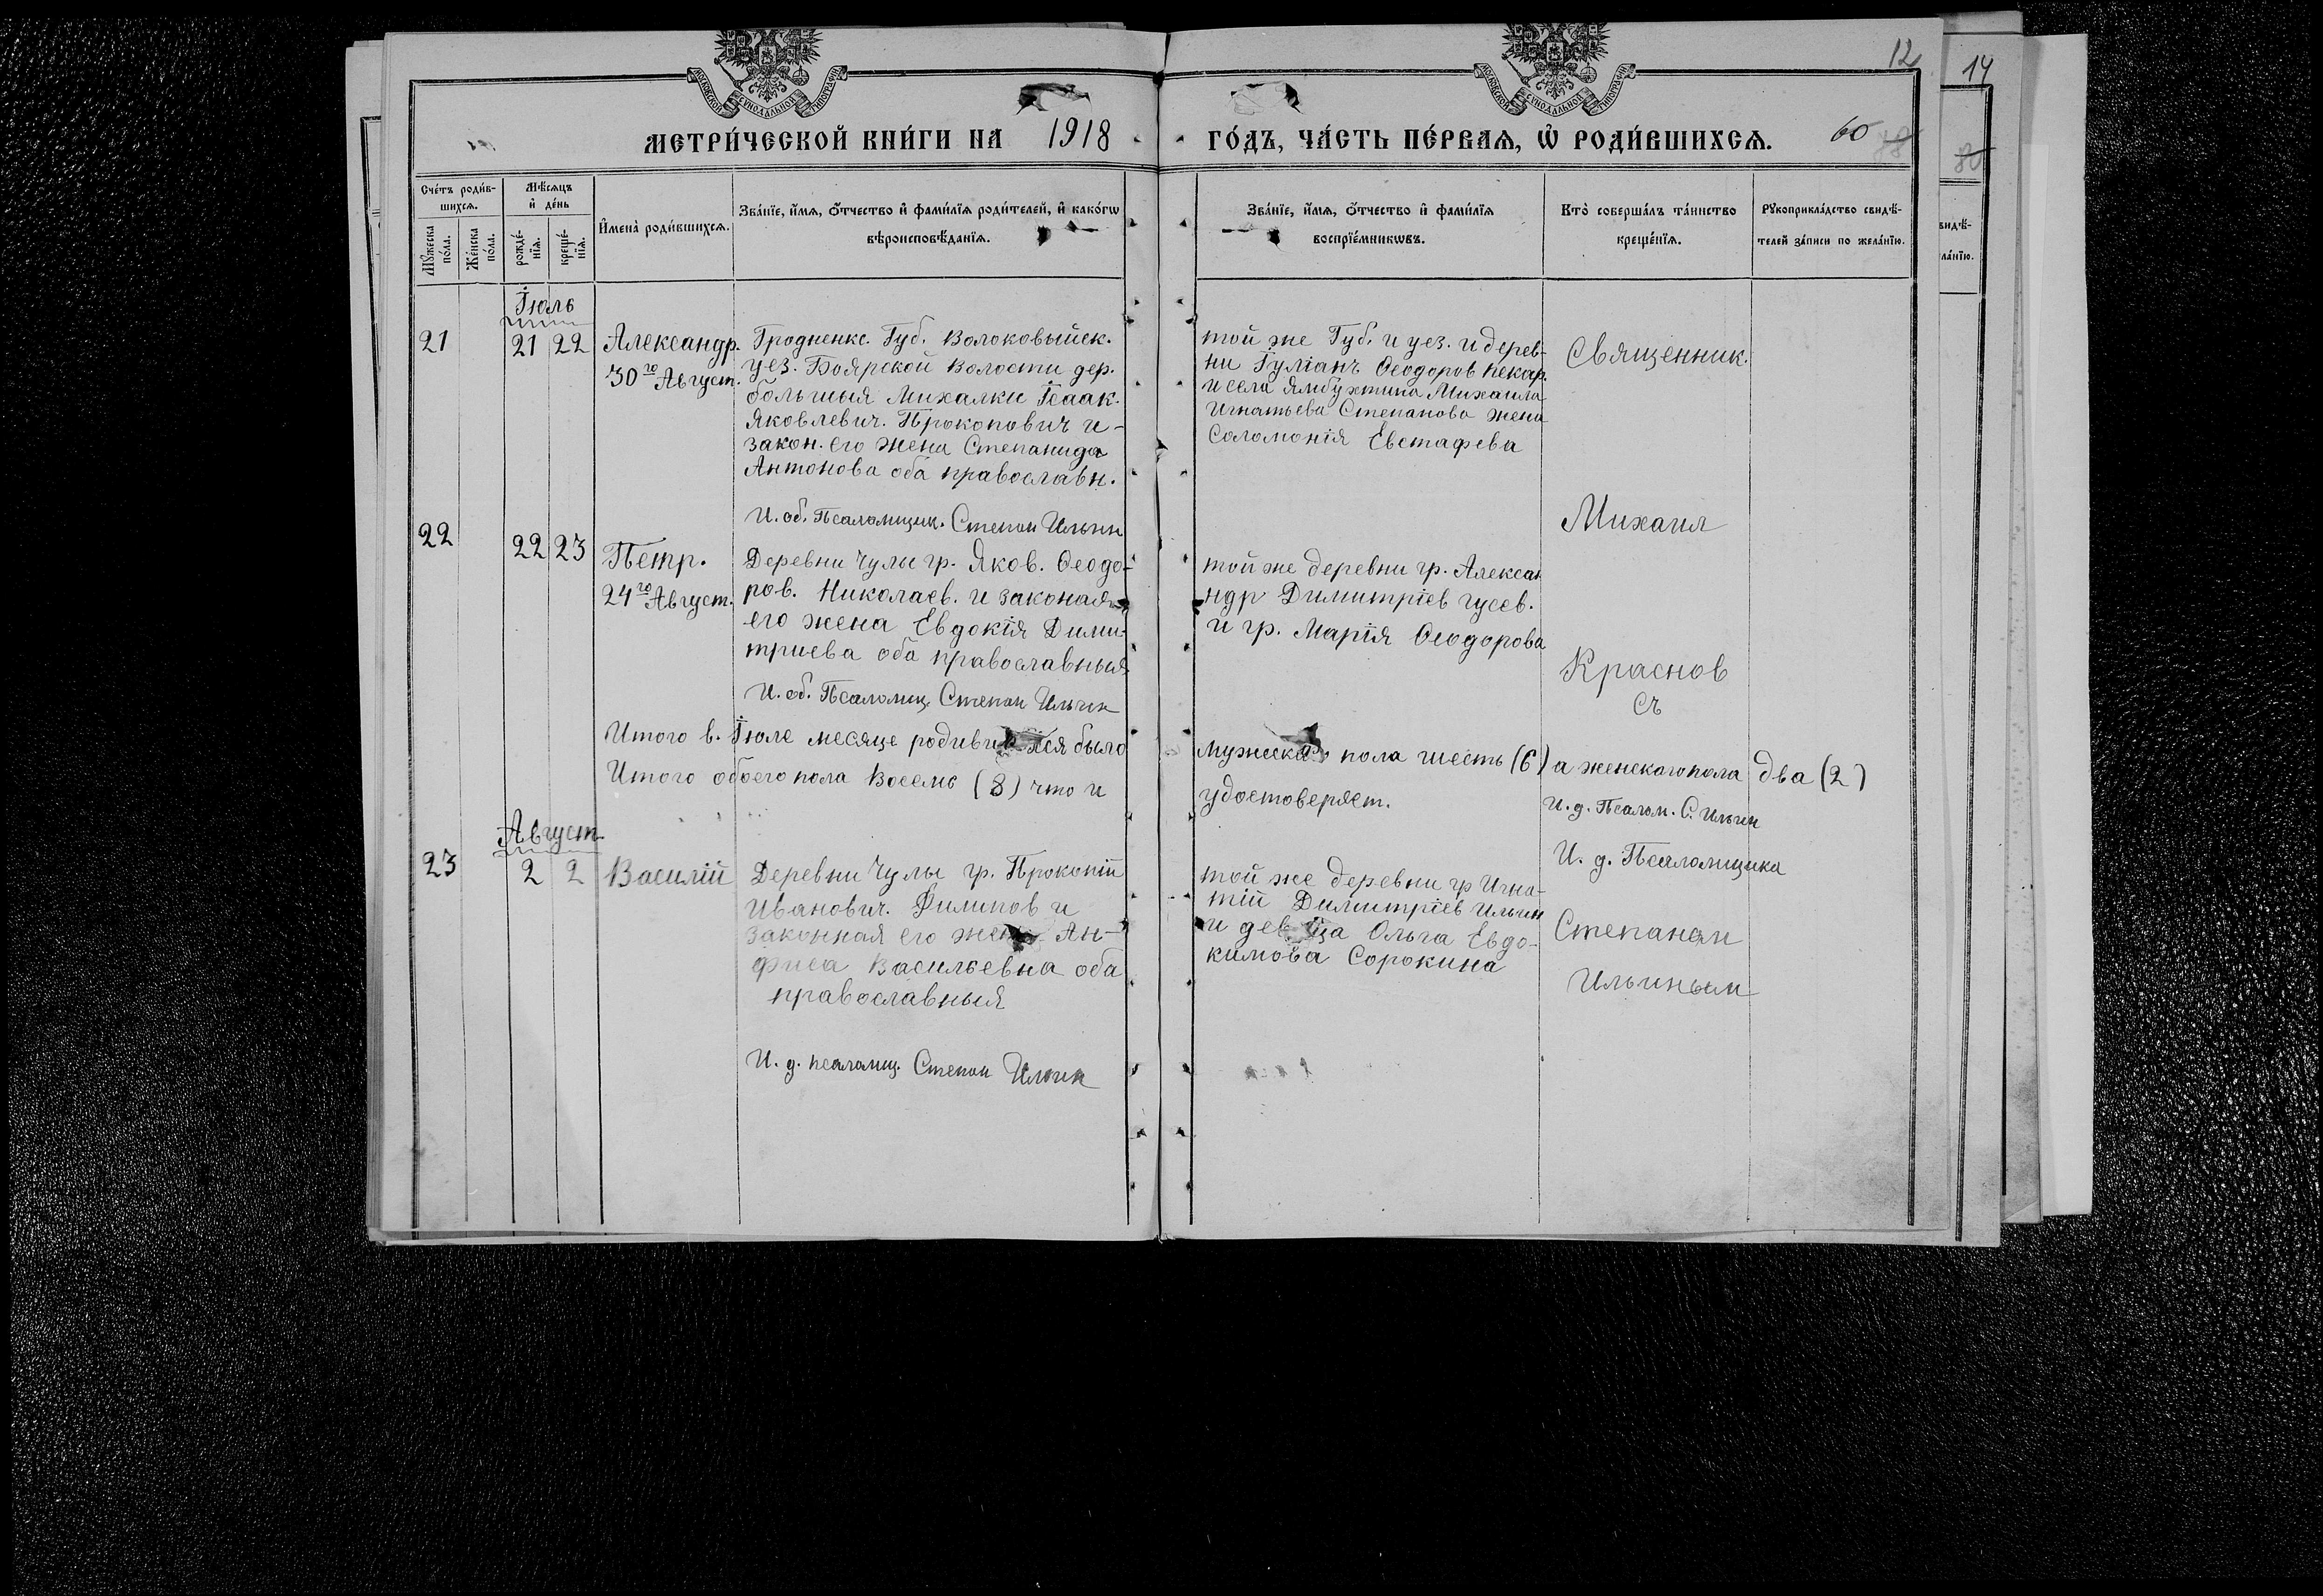 МОСКОВСКОЙ СѴНОДАЛЬНОЙ ТИПОГРАФІИ
МОСКОВСКОЙ СѴНОДАЛЬНОЙ ТИПОГРАФІИ
12
14
МЕТРИ́ЧЕСКОЙ КНИ́ГИ НА 1918
ГО́ДЪ, ЧА́СТЬ ПЕ́РВАЯ, Ѡ҆ РОДИ́ВШИХСЯ.
60
Сче́тъ роди́в-
шихся.
Мꙋ́жеска
по́ла.
Же́нска
по́ла.
Мѣ́сяцъ
и҆ де́нь
рожде́-
нїя.
креще́-
нїя.
И҆мена̀ роди́вшихся.
Зва́нїе, и҆́мя, ѻ҆́тчество и҆ фами́лїя роди́телей, и҆ како́гѡ
вѣроисповѣ́данїя.
Зва́нїе, и҆́мя, ѻ҆́тчество и҆ фами́лїя
воспрїе́мникѡвъ.
Кто̀ соверша́лъ та́инство
креще́нїя.
Рꙋкоприкла́дство свидѣ́-
телей за́писи по жела́нїю.
видѣ́-
ла́нїю.
Іюль
21
21 22
Александр.
30го Август.
Гродненкс. Губ. Волоковыйск.
уез. Боярской Волости дер.
большыя Михалки Ісаак.
Яковлевич. Прокопович и-
закон. его жена Степанида
Антонова оба православн.
И. об. Псаломщик. Степан Ильин
той же Губ. и уез. и дерев-
ни Гуліанъ Ѳеодоров Пекар.
и села Ямбухтина Михаила
Игнатьева Степанова жена
Соломонія Евстафева
Священник.
22
22 23
Петр.
24го Август.
Деревни Чулы гр. Яков. Ѳеодо-
ров. Николаев. и законая
его жена Евдокія Дими-
триева оба православныя
И. об. Псаломщ. Степан Ильин
той же деревни гр. Алексан
ндр Димитріев Гусев.
и гр. Марія Ѳеодорова
Михаил
Краснов
съ
Итого в. Іюле месяце родившихся было мужеска пола шесть (6) а женского пола два (2)
Итого обоего пола Восемь (8) что и удостоверяет.
И. д. Псалом. С. Ильин
Август.
23
2 2
Василій
Деревни Чулы гр. Прокопій
Иванович. Филипов и
законная его жена Ан-
фиса Васильевна оба
православныя
И. д. псаломщ. Степан Ильин
той же деревни гр Игна-
тій Димитріев Ильин
и девица Ольга Евдо-
кимова Сорокина
И. д. Псаломщика
Степаном
Ильиным